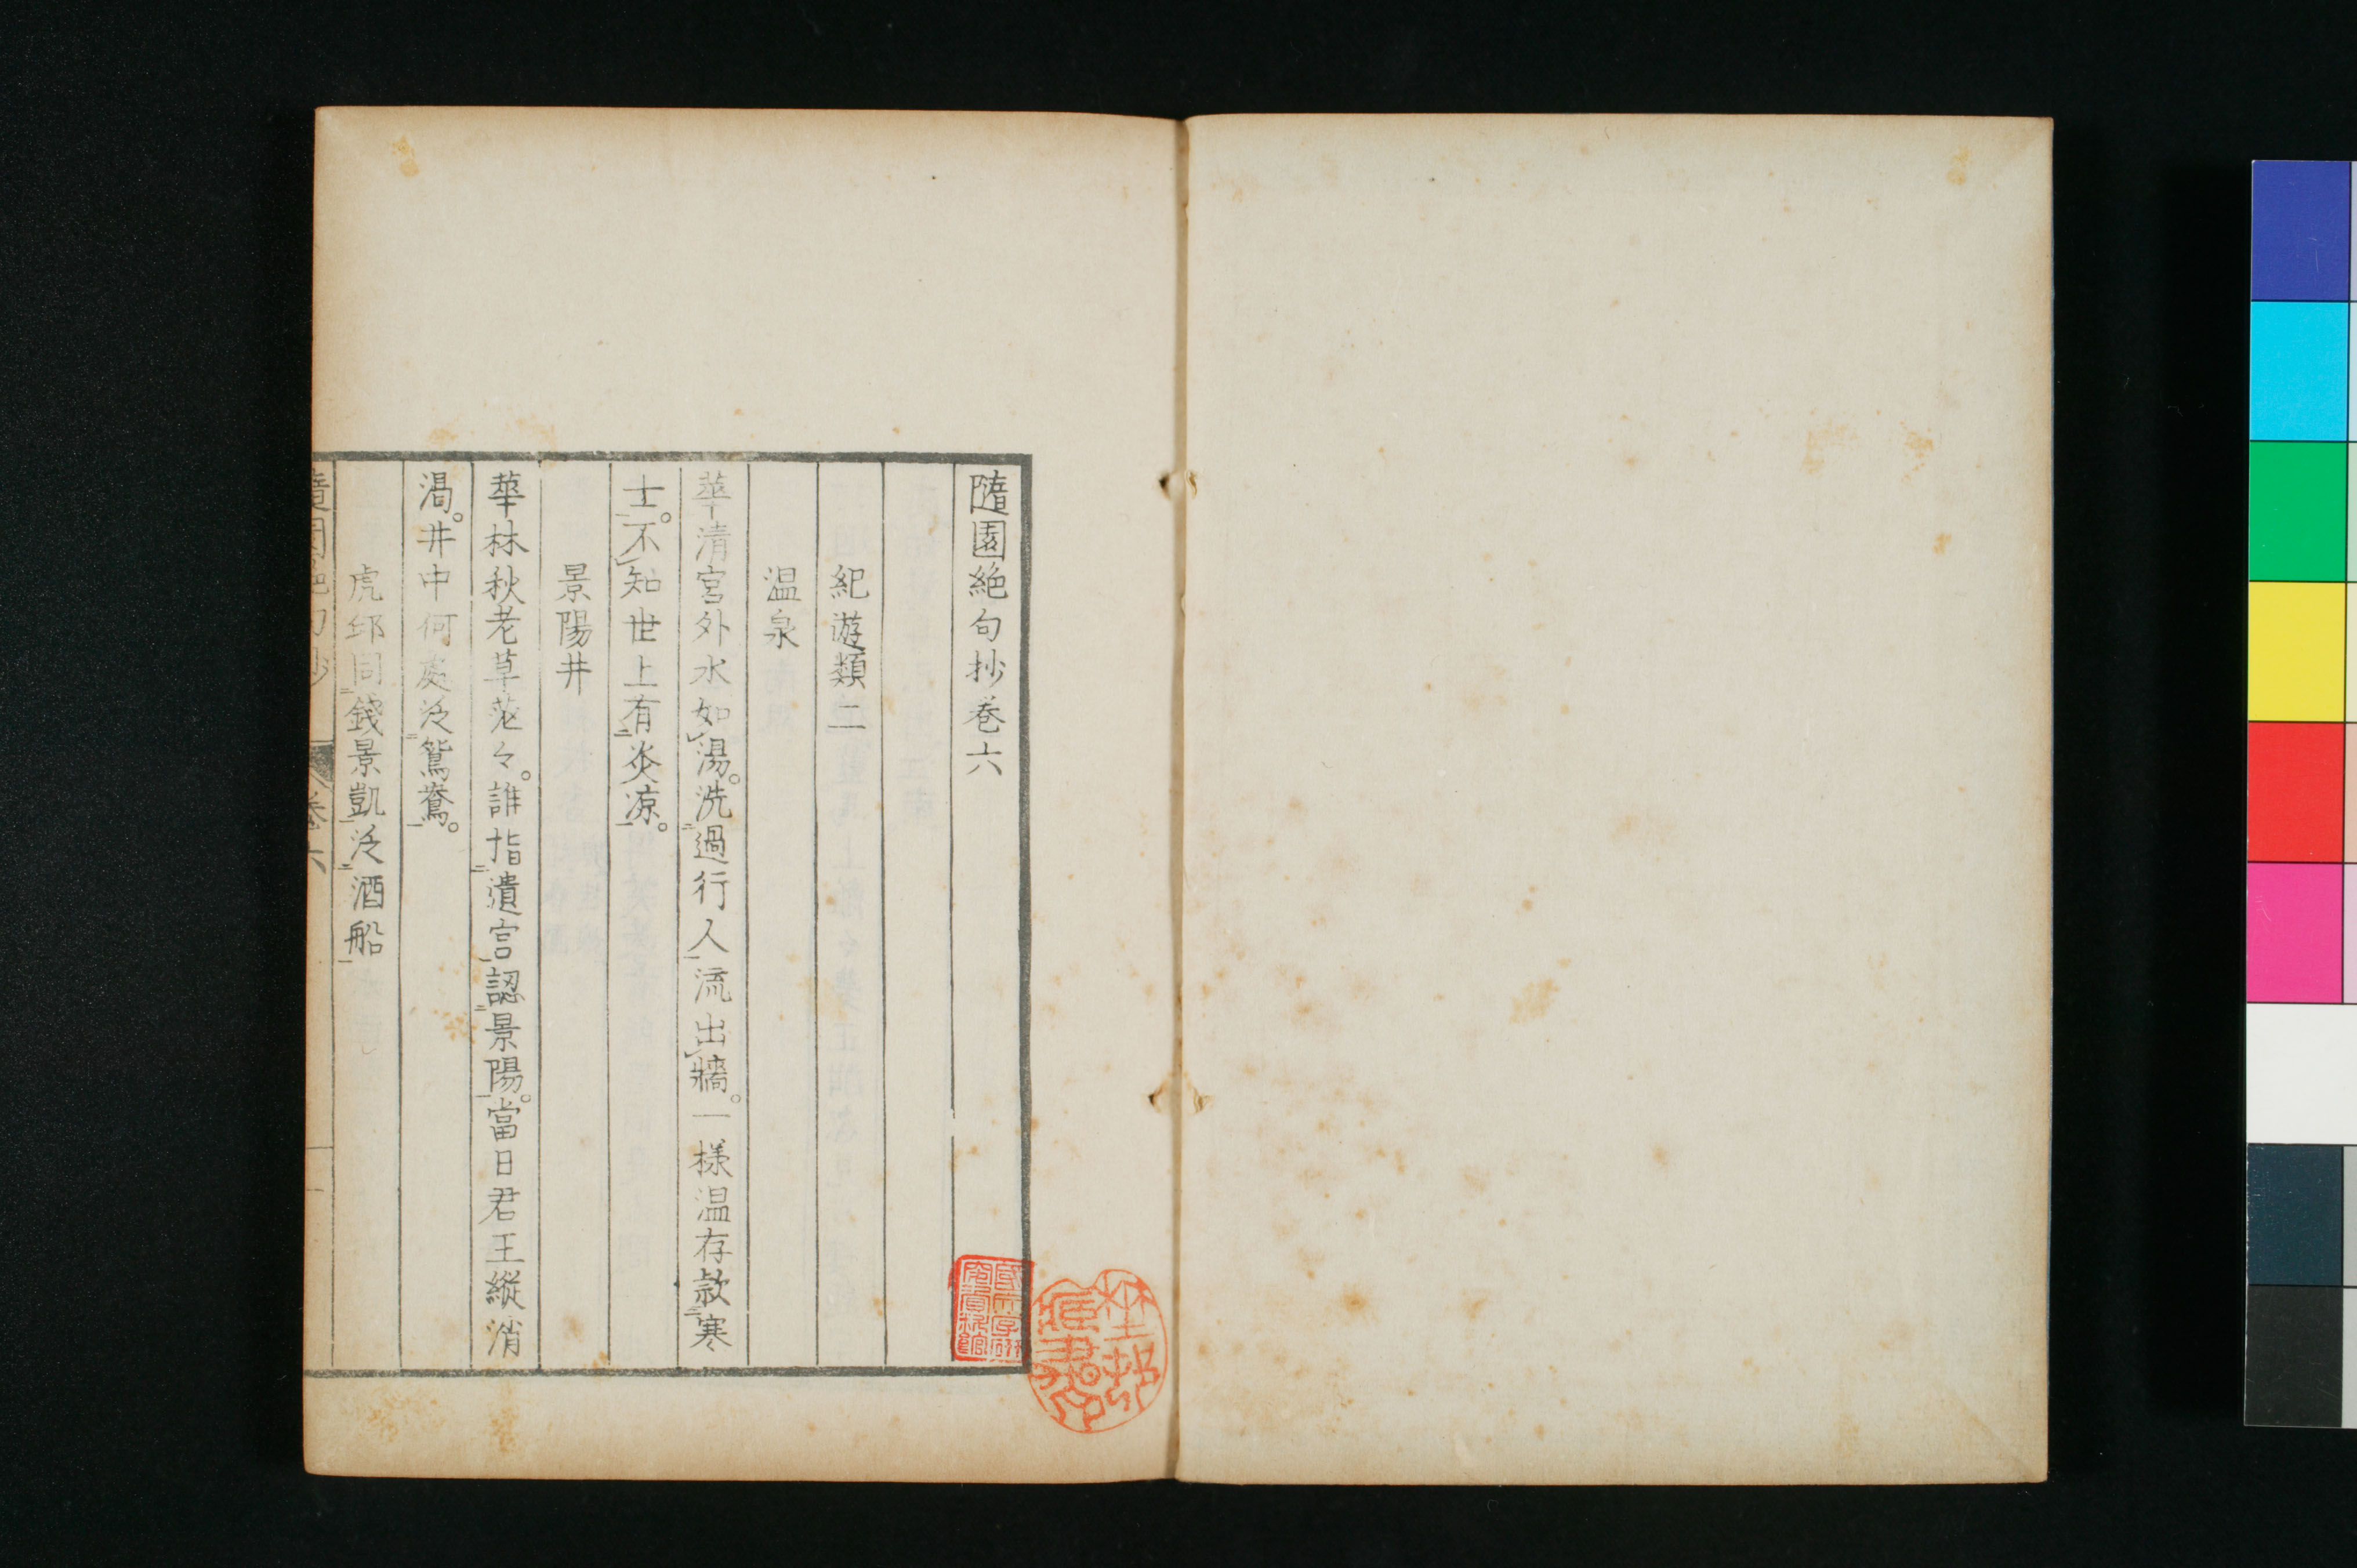 隨園絶句抄巻六
紀遊類二
温泉
華清宮外水如湯。洗過行人流出牆。一様温存款寒
士。不知世上有炎凉。
景陽井
華林秋老草茫々。誰指遺宮認景陽。當日君王縦消
渇。井中何處泛鴛鴦。
虎邱同錢景凱泛酒船